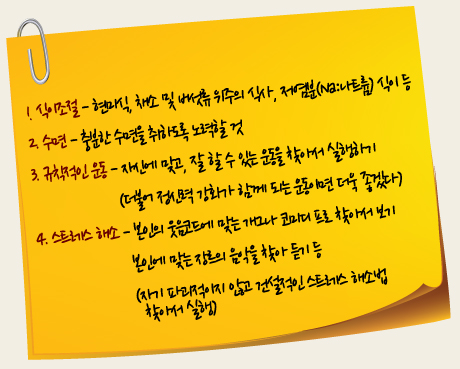 1. 식이조절 - 현미식, 채소 및 버섯류 위주의 식사, 저염분(Na:나트륨) 식이 등
2. 수면 - 충분한 수면을 취하도록 노력할 것
3. 규칙적인 운동 - 자신에 맞고, 잘 할 수 있는 운동을 찾아서 실행하기
(더불어 정신력 강화가 함께 되는 운동이면 더욱 좋겠다)
4. 스트레스 해소 - 본인의 웃음코드에 맞는 개그나 코미디 프로 찾아서 보기
본인에 맞는 장르의 음악을 찾아 듣기 등
(자기 파괴적이지 않고 건설적인 스트레스 해소법
찾아서 실행)